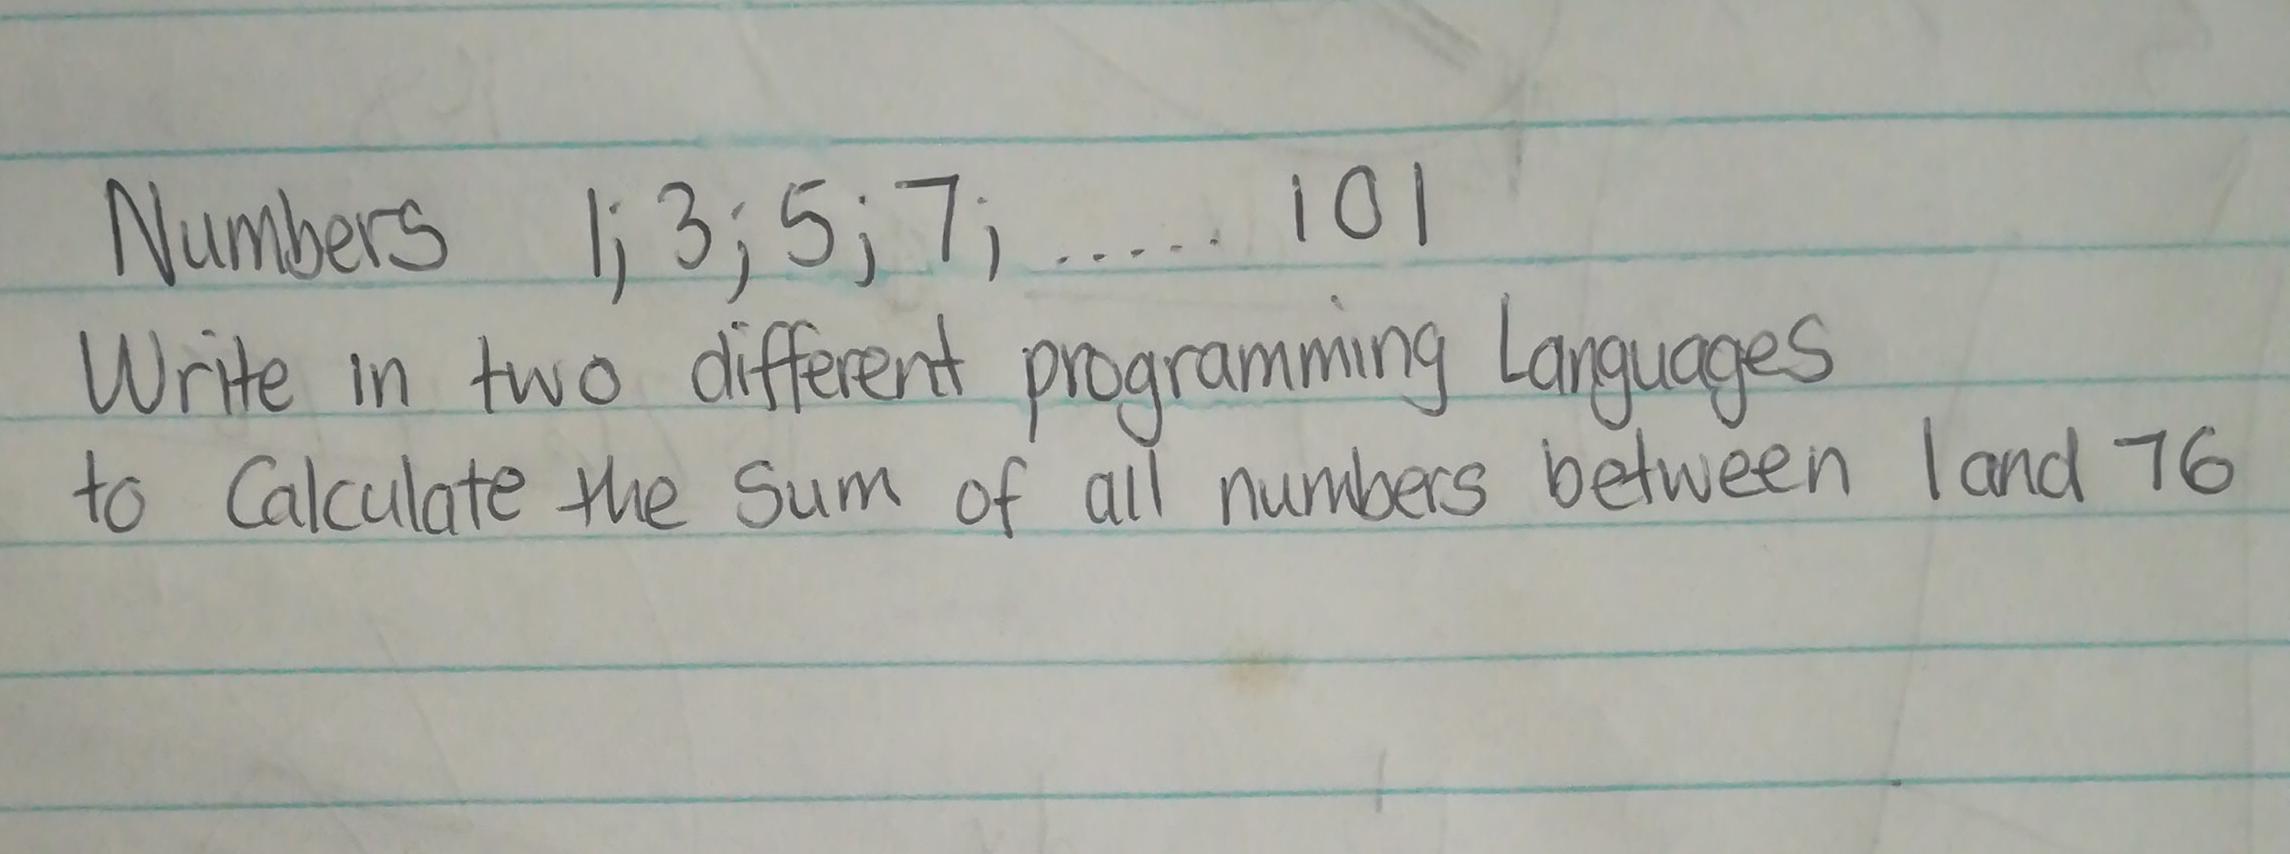 Numbers 1; 3; 5; 7; ...... 101
Write in two different programming Languages
to Calculate the Sum of all numbers between 1 and 76